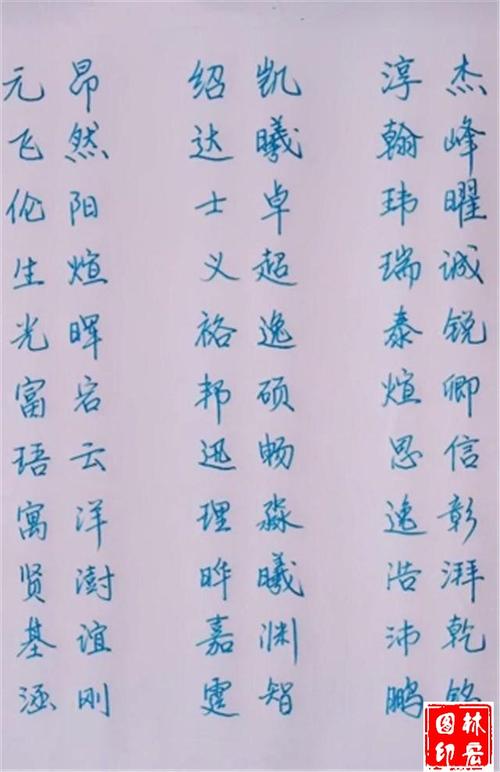 元昂 绍凯 淳杰
飞然 达曦 翰峰
伦阳 士卓 玮曜
生煊 义超 瑞诚
光晖 裕逸 泰锐
富宕 邦硕 煊卿
珸云 迅畅 思信
寓洋 理淼 逸彰
贤澍 晔曦 浩湃
基谊 嘉渊 沛乾
涵刚 霆智 鹏